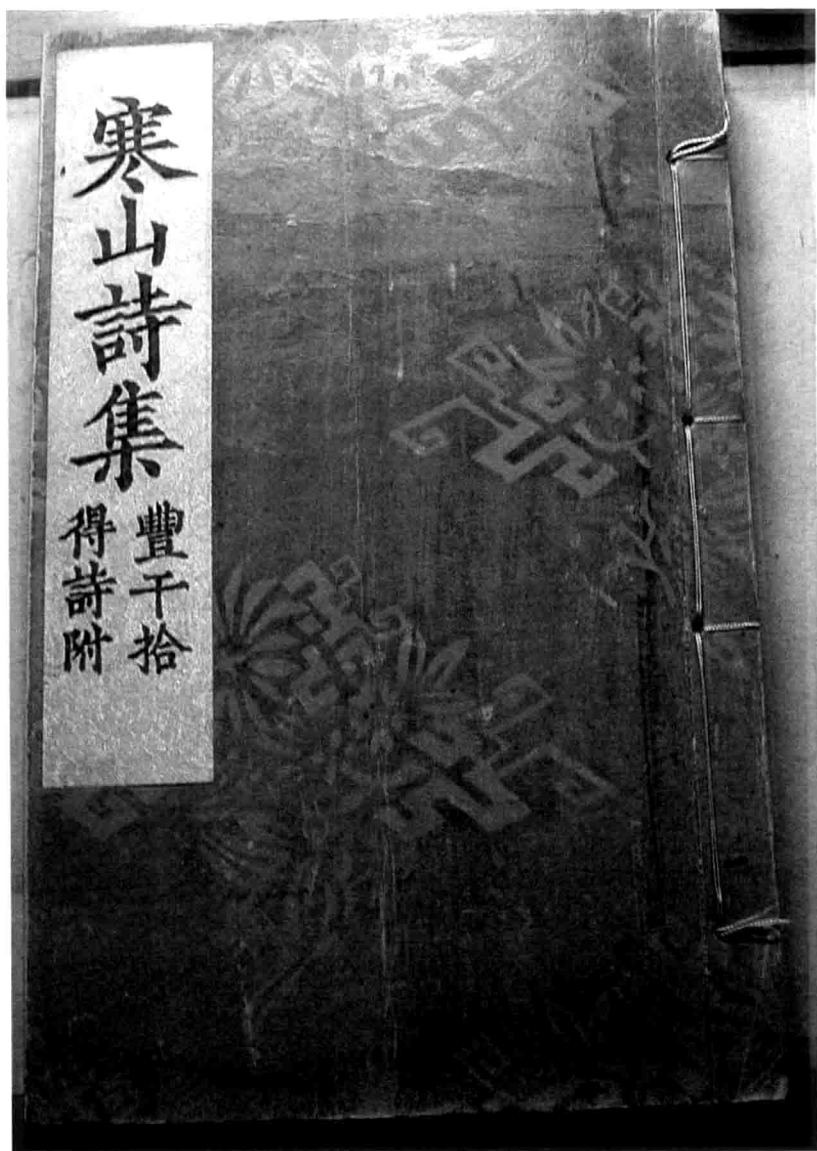 寒山詩集
豐干拾
得詩附